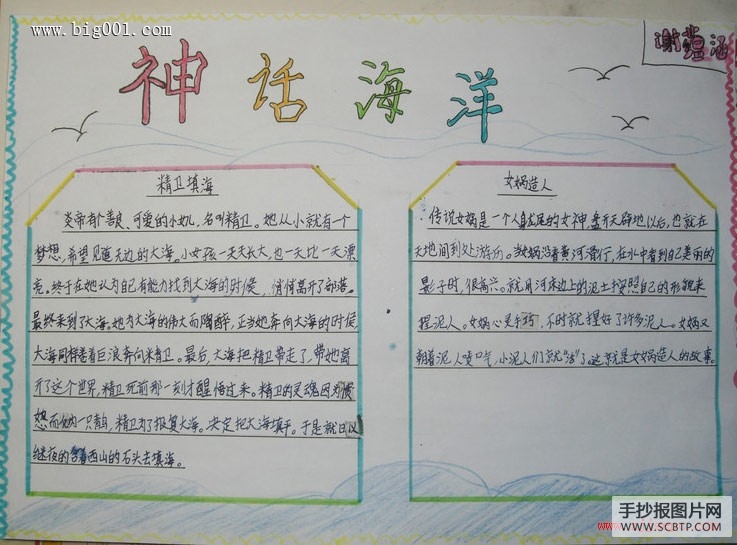 www.big001.com
神话海洋
谢 涵
精卫填海
炎帝有个善良、可爱的小女儿,名叫精卫。她从小就有一个
梦想,希望见道无边的大海。小女孩一天天长大,也一天比一天漂
亮。终于在她认为自己有能力找到大海的时候,悄悄离开了部落。
最终来到了大海。她为大海的伟大而陶醉,正当她奔向大海的时候
大海同样卷着巨浪奔向米青卫。最后,大海把精卫带走了,带她离
开了这个世界,精卫死前那一刻才醒悟过来。精卫的灵魂因为愤
怒而化为一只鸟,精卫为了报复大海。决定把大海填平。于是就日以
继夜的含着西山的石头去填海。
女娲造人
传说女娲是一个人身龙尾的女神,盘开天辟地以后,也就在
天地间到处游历。当女娲沿着黄河滑行,在水中看到自己美丽的
影子时,很高兴。就用河床边上的泥土按照自己的形貌来
捏泥人。女娲心灵手巧,不时就捏好了许多泥人。女娲又
朝着泥人喷口气,小泥人们就“活”了。这就是女娲造人的故事。
手抄报图片网
www.SCBTP.com